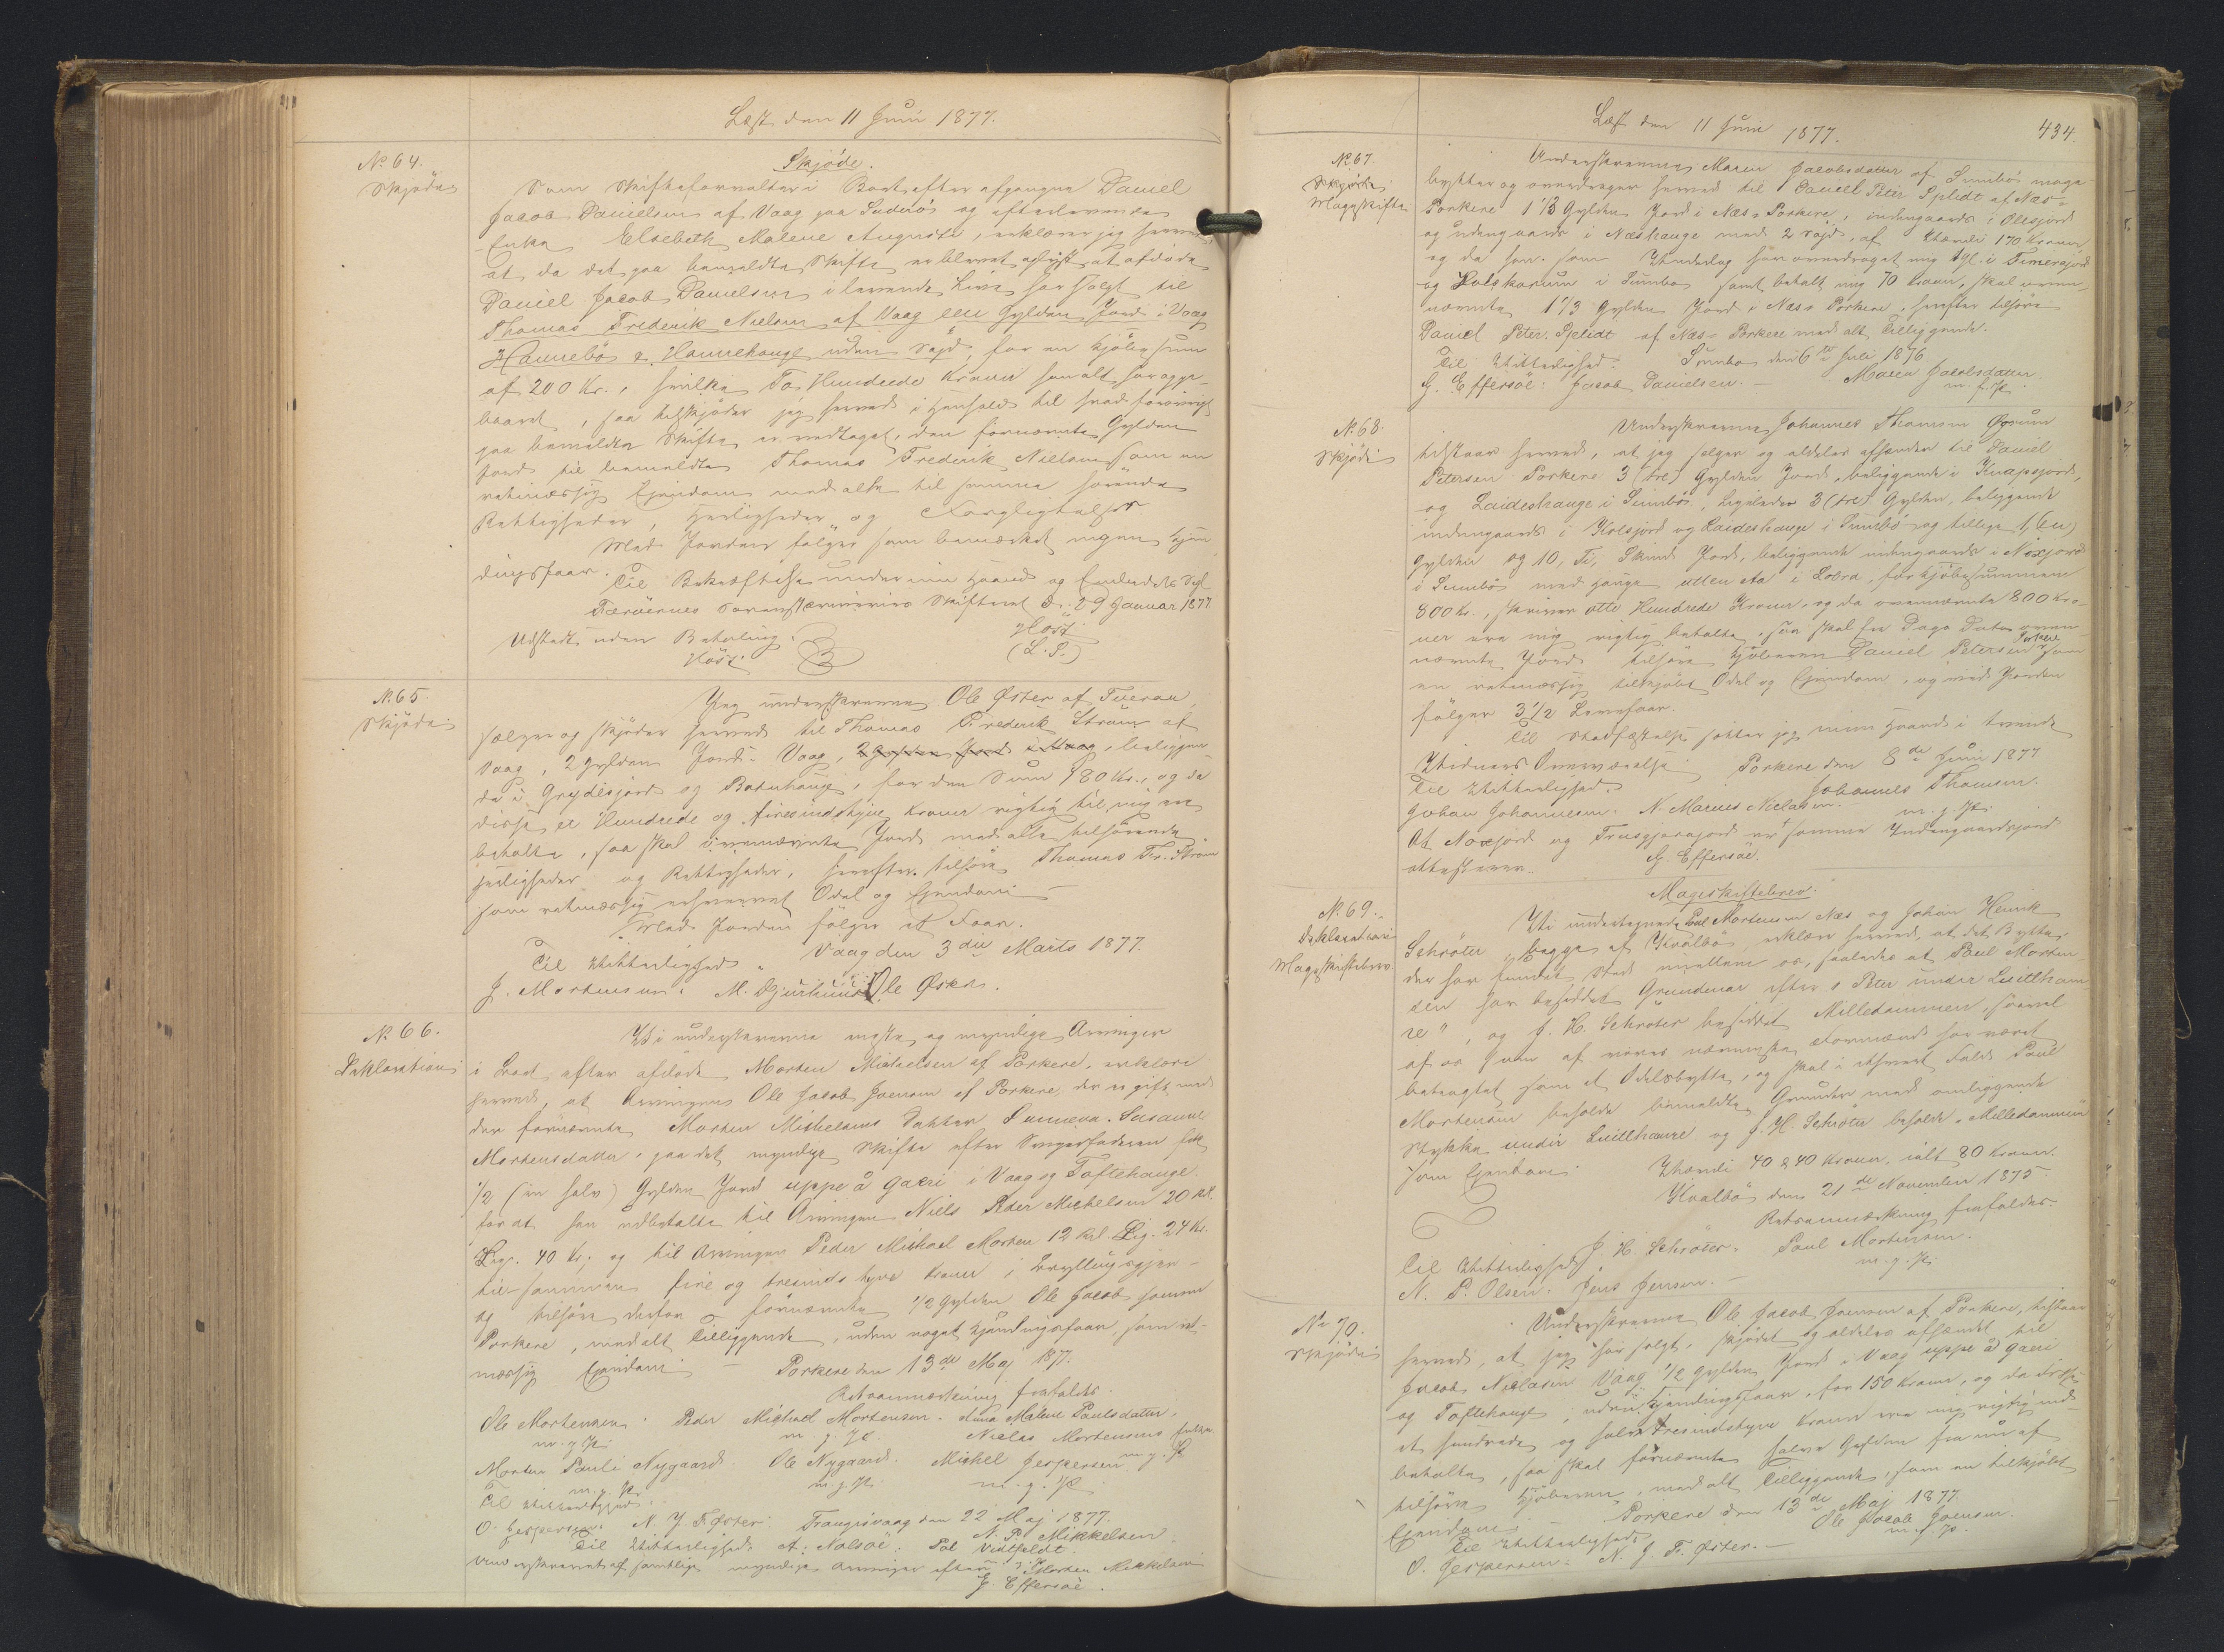 Læst den 11 Juni 1877.
No. 64.
Skjöde
Skjöde.
Som Skifteforvalter i Boet efter afgangne Daniel
Jacob Danielsen af Vaag paa Suderö og efterlevende
Enke Elsebeth Malene Auguste, erklærer jeg herved
at da det paa bemeldte Skifte er blevet oplyst at afdøde
Daniel Jacob Danielsen i levende Live har solgt til
Thomas Frederik Nielsen af Vaag een Gylden Jord i Vaag
Hannebö & Hannehauge uden Søjd, for en Kjöbesum
af 200 Kr., hvilke To Hundrede Kroner han alt har oppe-
baaret, saa tilskjøder jeg herved i Henhold til hvad forövrigt
paa bemeldte Skifte er vedtaget, den fornævnte Gylden
Jord til bemeldte Thomas Frederik Nielsen som en
retmæssig Ejendom med alle til samme hørende
Rettigheder, Herligheder og Forpligtelser
Med Jorden følger som bemærket ingen Hjem-
dingsfaar.
Til Bekræftelse under min Haand og Embeds Segl
Færöernes Sorenskriveries Skifteret d. 29 Januar 1877.
Udstedt uden Betaling. Höst
Höst. (L. S.)
No. 65.
Skjöde
Jeg underskrevne Ole Øster af Tueraa,
sælger og skjøder herved til Thomas Frederik Strøm af
Vaag, 2 Gylden Jord i Vaag, 2 Gylden Jord i Vaag, beliggen-
de i Grydesjord og Botnhauge, for den Sum 180 Kr., og da
disse et Hundrede og firesindstyve Kroner rigtig til mig ere
betalte, saa skal ovennævnte Jord med alle tilhørende
Herligheder og Rettigheder, herefter tilhøre Thomas Fr. Strøm
som retmæssig erhvervet Odel og Ejendom —
Med Jorden følger et Faar.
Til Vitterlighed Vaag den 3die Marts 1877.
J. Mortensen. M. Djurhuus Ole Øster.
No. 66.
Deklaration
Vi underskrevne ægte og myndige Arvinger
i Boet efter afdøde Morten Michelsen af Porkere, erklære
herved, at Arvingens Ole Jacob Joensen af Porkere, der er gift med
den fornævnte Morten Michelsens Datter Sunneva Susanne
Mortensdatter, paa det myndige Skifte efter Svigerfaderen fik
1/2 (en halv) Gylden Jord uppe å gaeri i Vaag og Toftehauge
for at han udbetalte til Arvingen Niels Peder Michelsen 20 Rd.
Lig. 40 Kr. og til Arvingen Peder Michael Morten 12 Rd. Lig. 24 Kr.
tilsammen fire og tresinds tyve Kroner i
og tilhøre derfor fornævnte 1/2 Gylden Ole Jacob Joensen
Porkere, med alt Tilliggende, uden noget Hjemdingsfaar, som ret-
mæssig Ejendom — Porkere den 13de Maj 1877.
Retsanmærkning frafaldes.
Ole Mortensen. Peder Michael Mortensen. Anna Malene Poulsdatter,
m. f. P. m. f. P. Niclas Mortensens Enke
Morten Pauli Nygaard. Ole Nygaard. Michel Jespersen m. f. P.
m. f. P. m. f. P. m. f. P.
Til Vitterlighed:
O. Jespersen. N. J. F. Øster. Frangisvaag den 22 Maj 1877.
Til Vitterlighed: A. Nolsøe. Pol Vidtfeldt. N. P. Mikkelsen
underskrevet af samtlige myndige Arvinger efter Morten Mikkelsen
J. Effersøe.
Læst den 11 Juni 1877.
434.
No. 67.
Skjøde
Mageskifte
Underskrevne Maren Jacobsdatter af Sumbö mage-
bytter og overdrager herved til Daniel Peter Splidt af Næs-
Porkere 1 1/3 Gylden Jord i Næs-Porkere, indengaards i Olesjord
og udengaards i Næshauge med 2 Søjd, af Værdi 170 Kroner
og da han som Vederlag har overdraget mig 1 Gl. i Timersjord
og i Sumbö samt betalt mig 70 Kroner, skal oven-
nævnte 1 1/3 Gylden Jord i Næs-Porkere, herefter tilhøre
Daniel Peter Splidt af Næs-Porkere med alt Tilliggende.
Til Vitterlighed. Sumbö den 6te Juli 1876.
J. Effersøe. Jacob Danielsen. — Maren Jacobsdatter
m. f. P.
No. 68.
Skjöde
Underskrevne Johannes Thomsen Ørum
tilstaar herved, at jeg sælger og aldeles afhænder til Daniel
Petersen Porkere 3 (tre) Gylden Jord, beliggende i Knapsjord,
og Laideshauge i Sumbö, ligeledes 3 (tre) Gylden, beliggende
indengaards i Kolsjord og Laideshauge i Sumbö og tillige 1, (en)
Gylden og 10, Ti, Skind Jord, beliggende indengaards i Noxjord
i Sumbö med Hauge utten eta i Lobra, for Kjøbesummen
800 Kr., skriver otte Hundrede Kroner, og da ovennævnte 800 Kro-
ner ere mig rigtig betalte, saa skal fra Dags Dato oven-
nævnte Jord tilhøre Kjøberen Daniel Petersen Porkere som
en retmæssig tilkjöbt Odel og Ejendom, og med Jorden
følger 3 1/2 Lavefaar.
Til Stadfæstelse sætter jeg min Haand i tvende
Vidners Overværelse Porkere den 8de Juni 1877
Til Vitterlighed. Johannes Thomsen.
Johan Johannesen. N. Marius Niclasen. m. f. P.
At Noxjord og Trusgjørajord er samme Indengaardsjord
attesterer. J. Effersøe.
No. 69.
Deklaration
Mageskiftebrev
Mageskiftebrev.
Vi undertegnede Poul Mortensen Næs og Johan Henrik
Schröter begge af Kvalbö erklære herved, at det Bytte,
der har fundet Sted mellem os, saaledes at Poul Morten-
sen har besiddet Grundene efter "Peter under Luitthæm-
re", og J. H. Schröter besiddet Milledammen, saavel
af os som af vores nærmeste Formænd har været
betragtet som et Odelsbytte, og skal i ethvert Fald Poul
Mortensen beholde bemeldte Grunde med omliggende
Stykke undir Luitthamre og J. H. Schröter beholde „Milledammen"
som Ejendom. Værdi 40 & 40 Kroner, ialt 80 Kroner.
Kvalbö den 21de November 1875.
Retsanmærkning frafaldes.
Til Vitterlighed J. H. Schröter. Poul Mortensen.
N. P. Olsen. Jens Jensen. — m. f. P.
No 70.
Skjöde
Underskrevne Ole Jacob Joensen af Porkere, tilstaar
herved, at jeg har solgt, skjødet og aldeles afhændet til
Jacob Niclasen Vaag 1/2 Gylden Jord i Vaag uppe å gaeri
og Toftehauge, uden Hjemdingsfaar, for 150 Kroner, og da disse
et hundrede og halvtresindstyve Kroner ere mig rigtig ind-
betalte, saa skal fornævnte halve Gylden fra nu af
tilhøre Kjøberen, med alt Tilliggende, som en tilkjöbt
Ejendom. Porkere den 13de Maj 1877.
Til Vitterlighed. Ole Jacob Joensen.
O. Jespersen. N. J. F. Øster. — m. f. P.